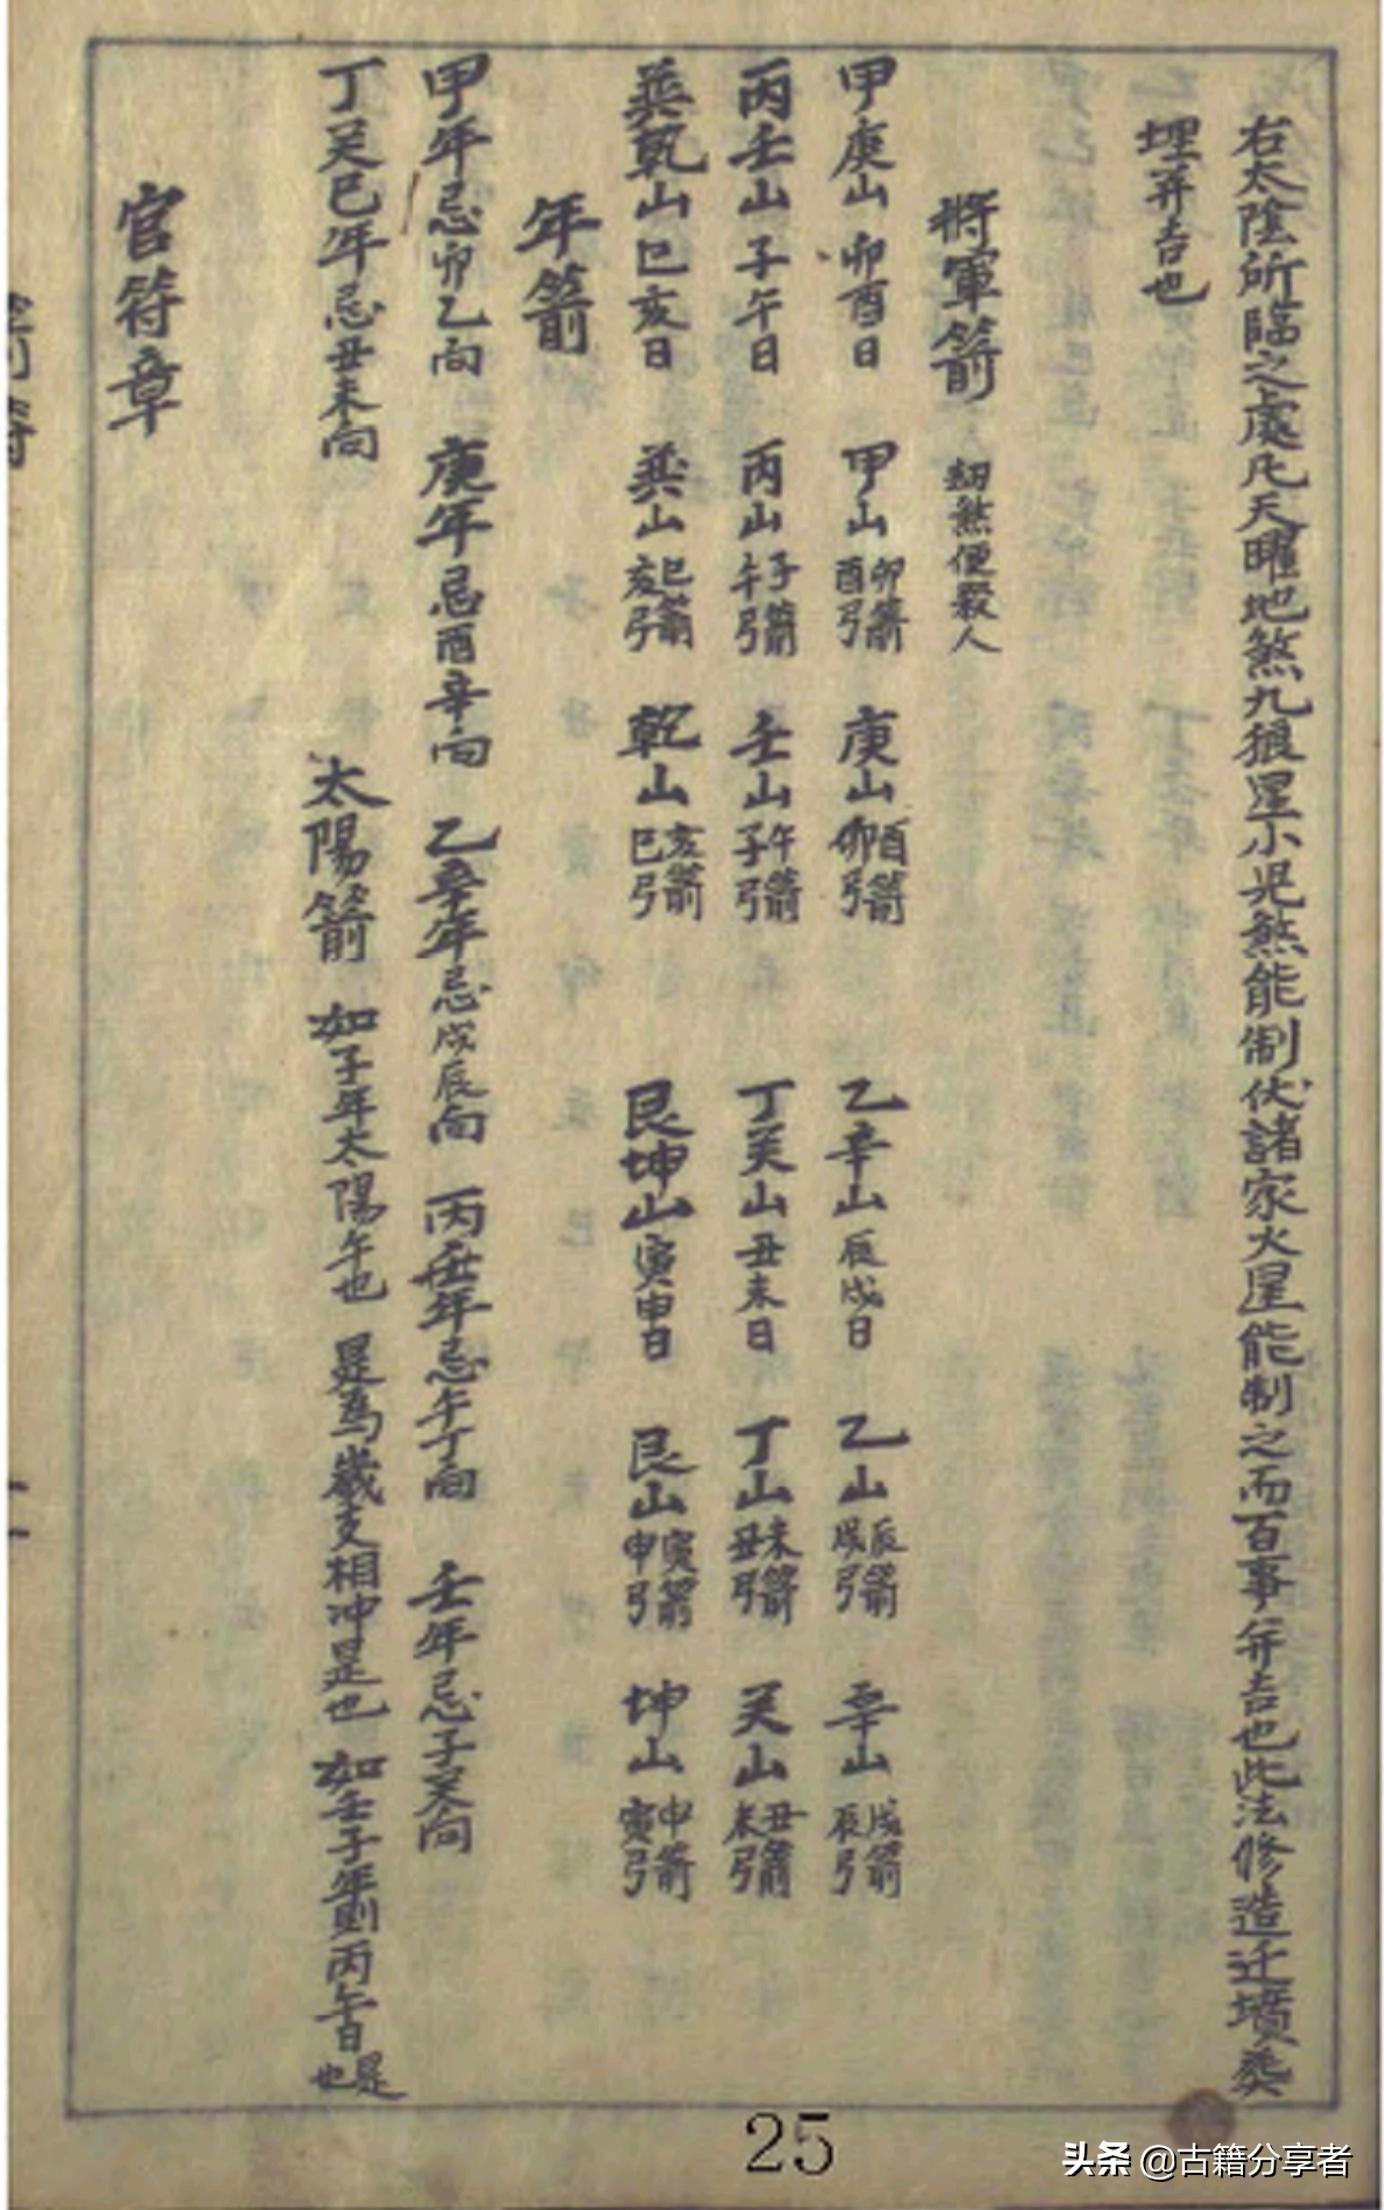 右太陰所臨之處凡天曜地煞九狼星小児煞能制伏諸家火星能制之而百事并吉也此法修造迁墳葵
埋并吉也
將軍箭 煞便殺人
甲庚山卯酉日 甲山卯箭酉弓 庚山酉箭卯弓 乙辛山辰戌日 乙山辰箭戌弓 辛山戌箭辰弓
丙壬山子午日 丙山子箭午弓 壬山午箭子弓 丁癸山丑未日 丁山未箭丑弓 癸山丑箭未弓
巽乾山巳亥日 巽山巳箭亥弓 乾山亥箭巳弓 艮坤山寅申日 艮山寅箭申弓 坤山申箭寅弓
年箭
甲年忌卯乙向 庚年忌酉辛向 乙辛年忌戌辰向 丙壬年忌午丁向 壬年忌子癸向
丁癸巳年忌丑未向 太陽箭 如子年太陽午也 是為歲支相冲是也 如壬子年則丙午日是也
官符章
25
头条 @古籍分享者